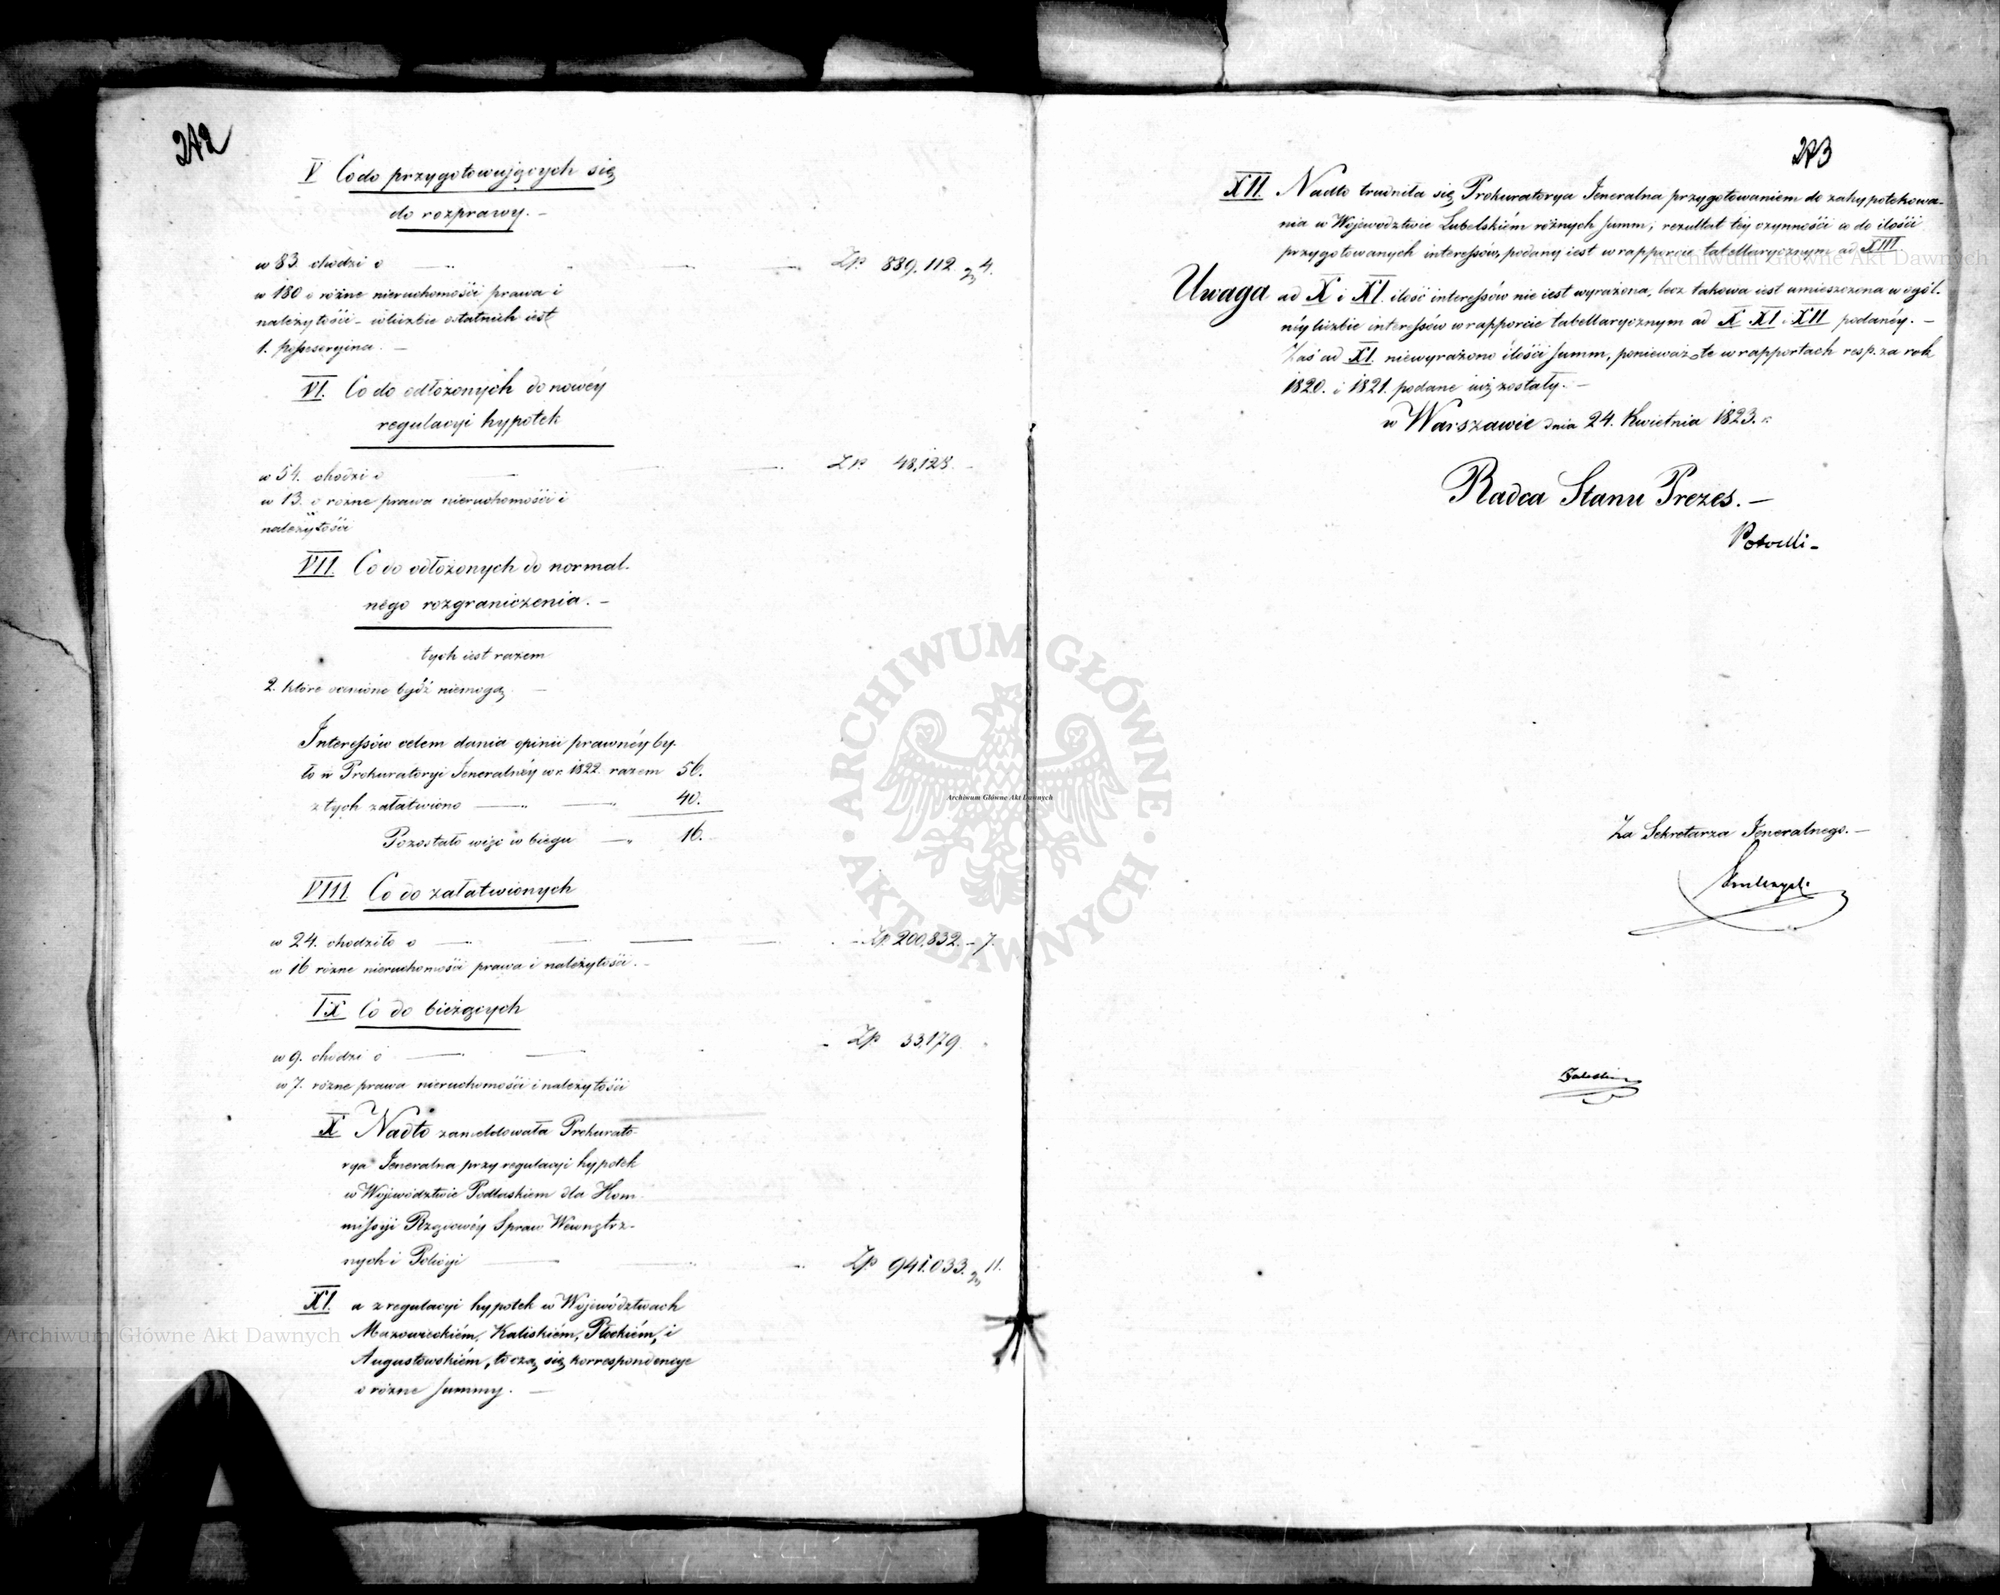 242
V Co do przygotowujących się
do rozprawy. –
w 83. chodzi o — „ „ — Zp. 839,112. gr 4.
w 180 o różne nieruchomości prawa i
należytości – w liczbie ostatnich iest
1. possessoryina. —
VI. Co do odłożonych do nowéy
regulacyi hypotek
w 54. chodzi o — Zp. 48,128. –
w 13. o różne prawa nieruchomości i
należytości
VII. Co do odłożonych do normal-
nego rozgraniczenia. –
tych iest razem
2. które ocenione bydź niemogą. —
Interessów celem dania opinii prawnéy by-
ło w Prokuratoryi Jeneralnéy w r. 1822. razem 56.
z tych załatwiono — „ — „ 40.
Pozostało więc w biegu — „ 16.
VIII. Co do załatwionych
w 24. chodziło o — Zp. 200,832. – 7.
w 16 rózne nieruchomości prawa i należytości. –
IX Co do bieżących
w 9. chodzi o — „ — Zp. 33,179.
w 7. rózne prawa nieruchomości i należytości
X Nadto zameldowała Prokurato-
rya Jeneralna przy regulacyi hypotek
w Województwie Podlaskiem dla Kom-
missyi Rządowéy Spraw Wewnętrz-
nych i Policyi — Zp. 941,033. gr 11.
XI. a z regulacyi hypotek w Województwach
Mazowieckiém, Kaliskiém, Płockiém, i
Augustowskiém, toczą się korrespondencye
o rózne summy. —
243
XII. Nadto trudniła się Prokuratorya Jeneralna przygotowaniem do zahypotekowa-
nia w Województwie Lubelskiém różnych summ; rezultat téy czynności co do ilości
przygotowanych interessów, podany iest w rapporcie tabellarycznym ad XIII.
Uwaga ad X i XI. ilość interessów nie iest wyrażona, lecz takowa iest umieszczona w ogól-
néy liczbie interessów w rapporcie tabellarycznym ad X XI i XII podanéy. –
Zaś ad XI. niewyrażono ilości summ, ponieważ te w rapportach resp. za rok
1820. i 1821. podane iuż zostały. –
w Warszawie dnia 24. Kwietnia 1823. r.
Radca Stanu Prezes. –
Za Sekretarza Jeneralnego. –
ARCHIWUM GŁÓWNE · AKT DAWNYCH ·
Archiwum Główne Akt Dawnych
Archiwum Główne Akt Dawnych
Archiwum Główne Akt Dawnych